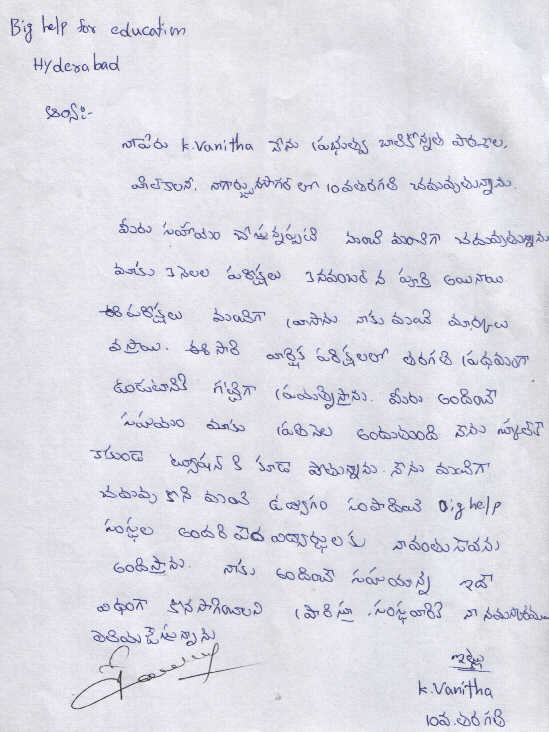 Big help for education
Hyderabad
నాపేరు K.Vanitha నేను ప్రభుత్వ బాలికోన్నత పాఠశాల,
హిల్ కాలని, నాగార్జునసాగర్ లో 10వతరగతి చదువుతున్నాను.
మీరు సహాయం చేస్తున్నప్పటి నుంచి మంచిగా చదువుతున్నాను
మాకు 3 నెలల పరీక్షలు 3 నవంబర్ న పూర్తి అయినాయి
ఈ పరీక్షలు మంచిగా వ్రాసాను నాకు మంచి మార్కులు
వస్తాయి. ఈ సారి వార్షిక పరీక్షలలో తరగతి ప్రథమంగా
ఉండుటానికి గట్టిగా ప్రయత్నిస్తాను. మీరు అందించే
సహాయం మాకు ప్రతినెల అందుతుంది నేను స్కూల్‌కే
కాకుండా ట్యూషన్ కి కూడా పోతున్నాను. నేను మంచిగా
చదువు కొని మంచి ఉద్యోగం సంపాదించి Big help
సంస్థల అందరి పేద విద్యార్థులకు నావంతు సేవను
అందిస్తాను. నాకు అందించే సహాయాన్ని ఇదే
విధంగా కొనసాగించాలని ప్రార్థిస్తూ సంస్థవారికి నా నమస్కారములు
తెలియచేస్తున్నాను
ఇట్లు
K.Vanitha
10వ.తరగతి